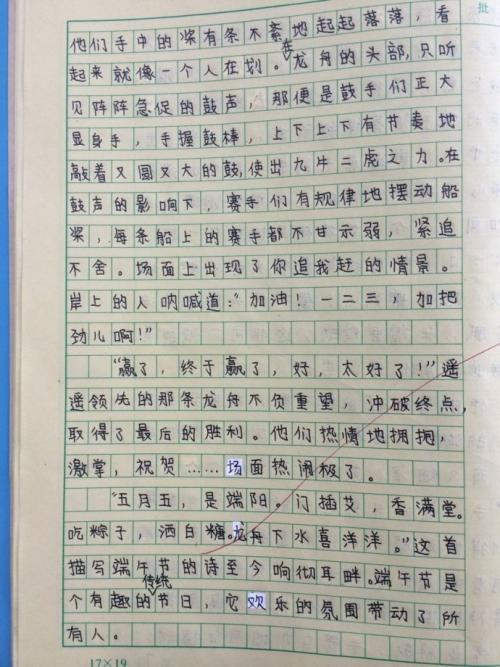 批
他们手中的桨有条不紊地起起落落，看
起来就像一个人在划。在龙舟的头部，只听
见阵阵急促的鼓声，那便是鼓手们正大
显身手，手握鼓棒，上下上下有节奏地
敲着又圆又大的鼓，使出九牛二虎之力。在
鼓声的影响下，赛手们有规律地摆动船
桨，每条船上的赛手都不甘示弱，紧追
不舍。场面上出现了你追我赶的情景。
岸上的人呐喊道：“加油！一二三，加把
劲儿啊！”
“赢了，终于赢了，好，太好了！”遥
遥领先的那条龙舟不负重望，冲破终点，
取得了最后的胜利。他们热情地拥抱，
激掌，祝贺……场面热闹极了。
“五月五，是端阳。门插艾，香满堂。
吃粽子，洒白糖。龙舟下水喜洋洋。”这首
描写端午节的诗至今响彻耳畔。端午节是
个有趣的传统节日，它欢乐的氛围带动了所
有人。
17×19